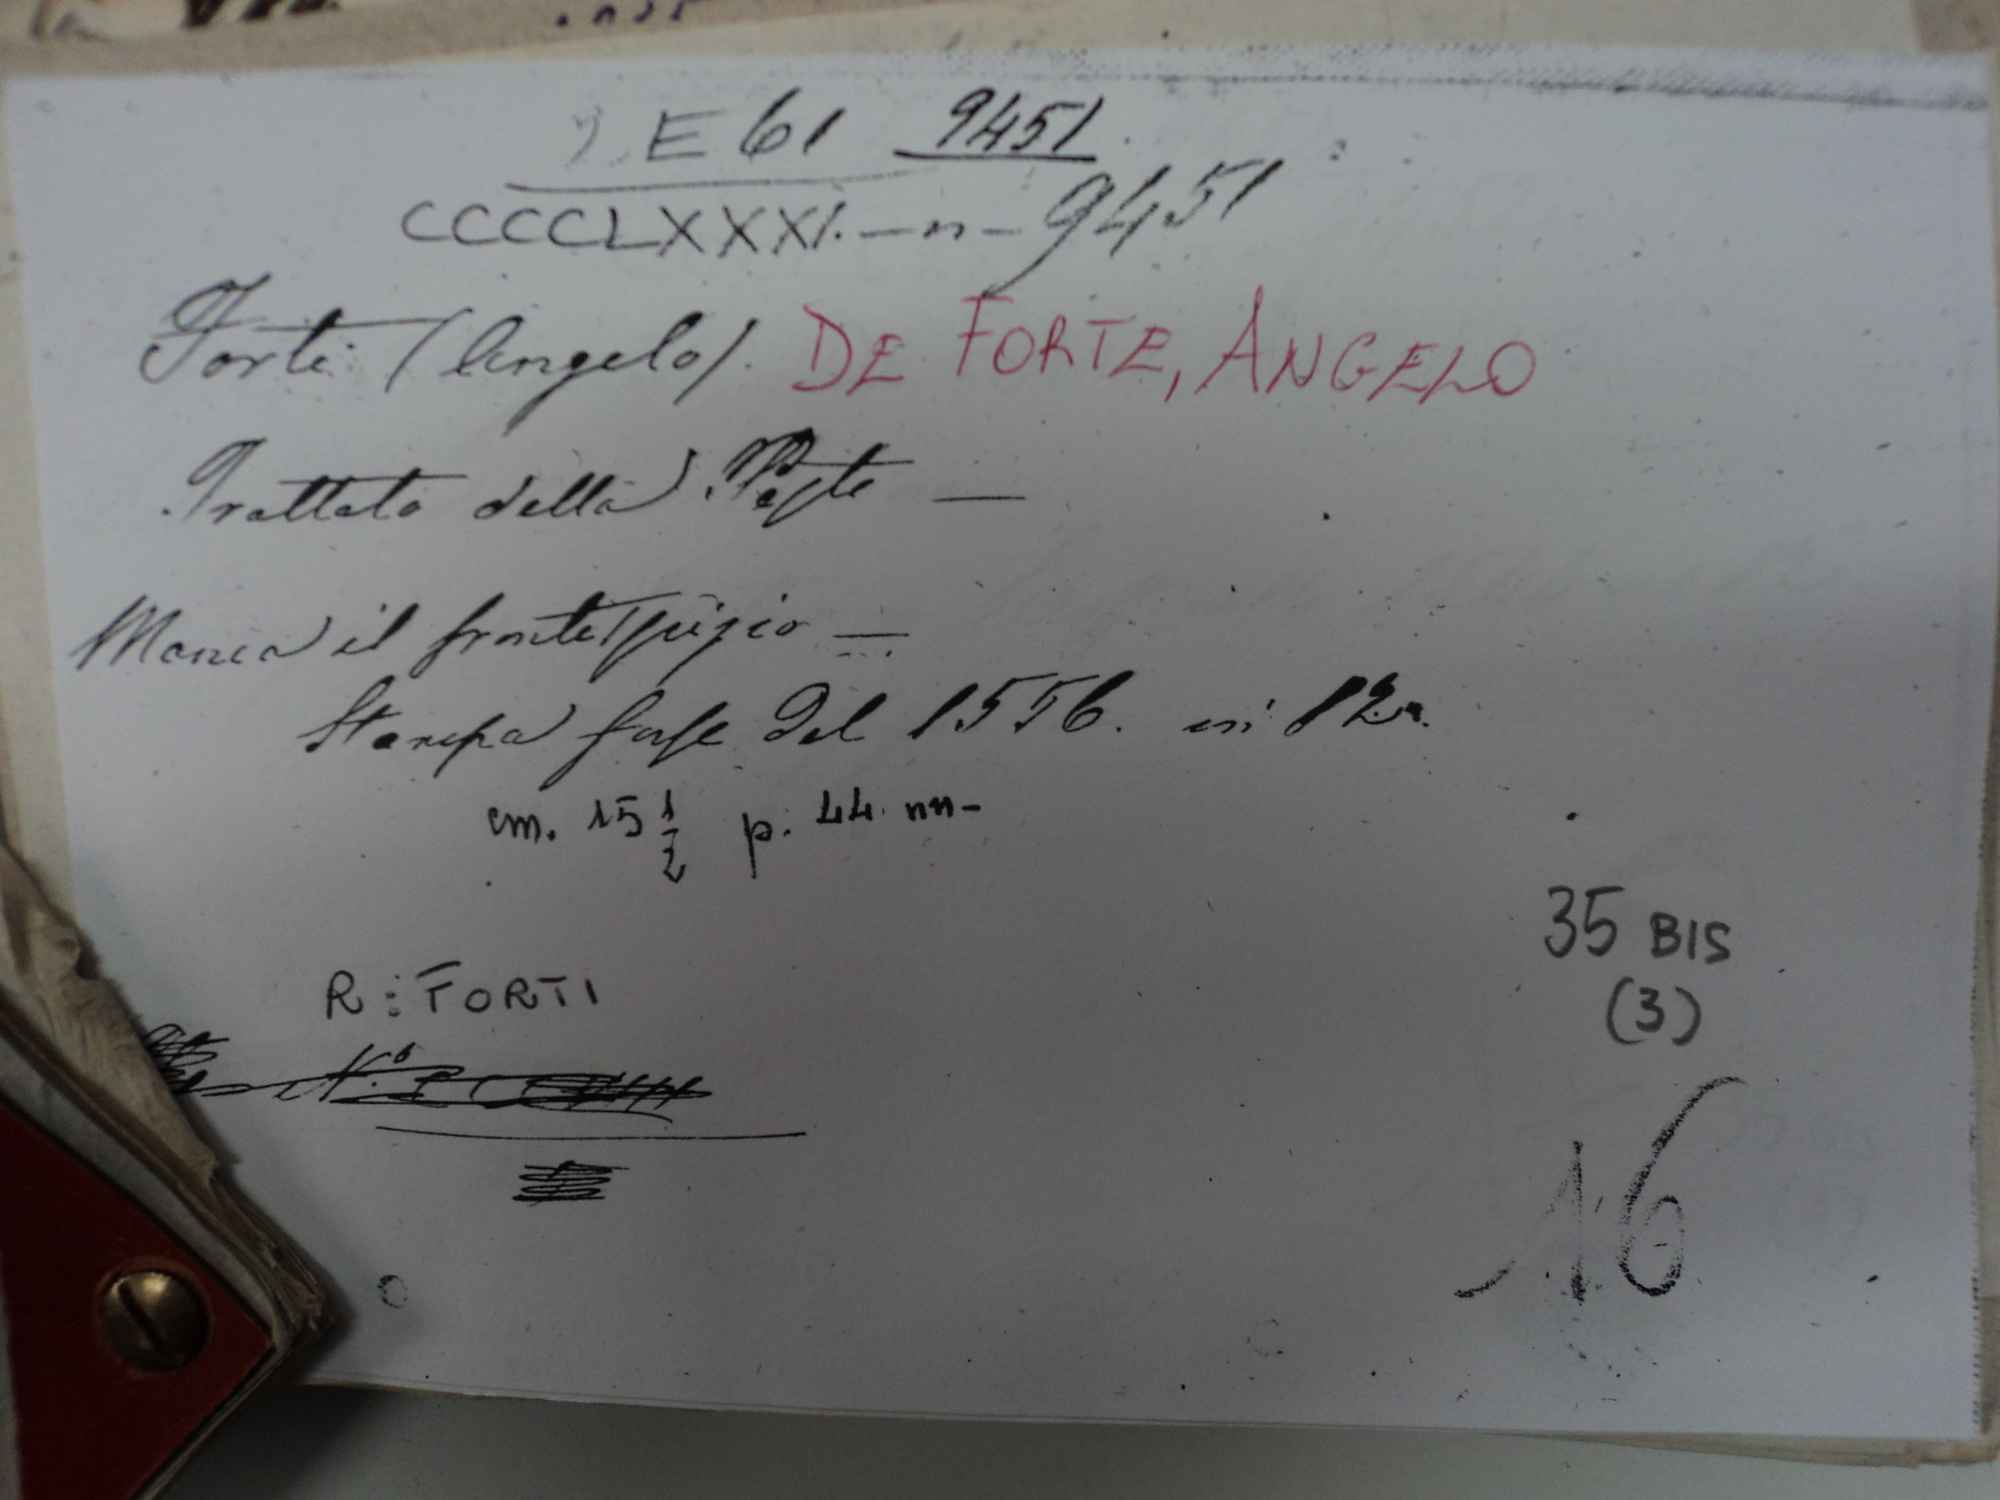 E 61 9451
CCCCLXXXI. — n — 9451
Forti (Angelo). DE FORTE, ANGELO
Trattato della Peste —
Manca il frontespizio —
Stampa forse del 1556. in 12.
cm. 15 1/2 p. 44. nn-
35 BIS
(3)
R: FORTI
N.°
16